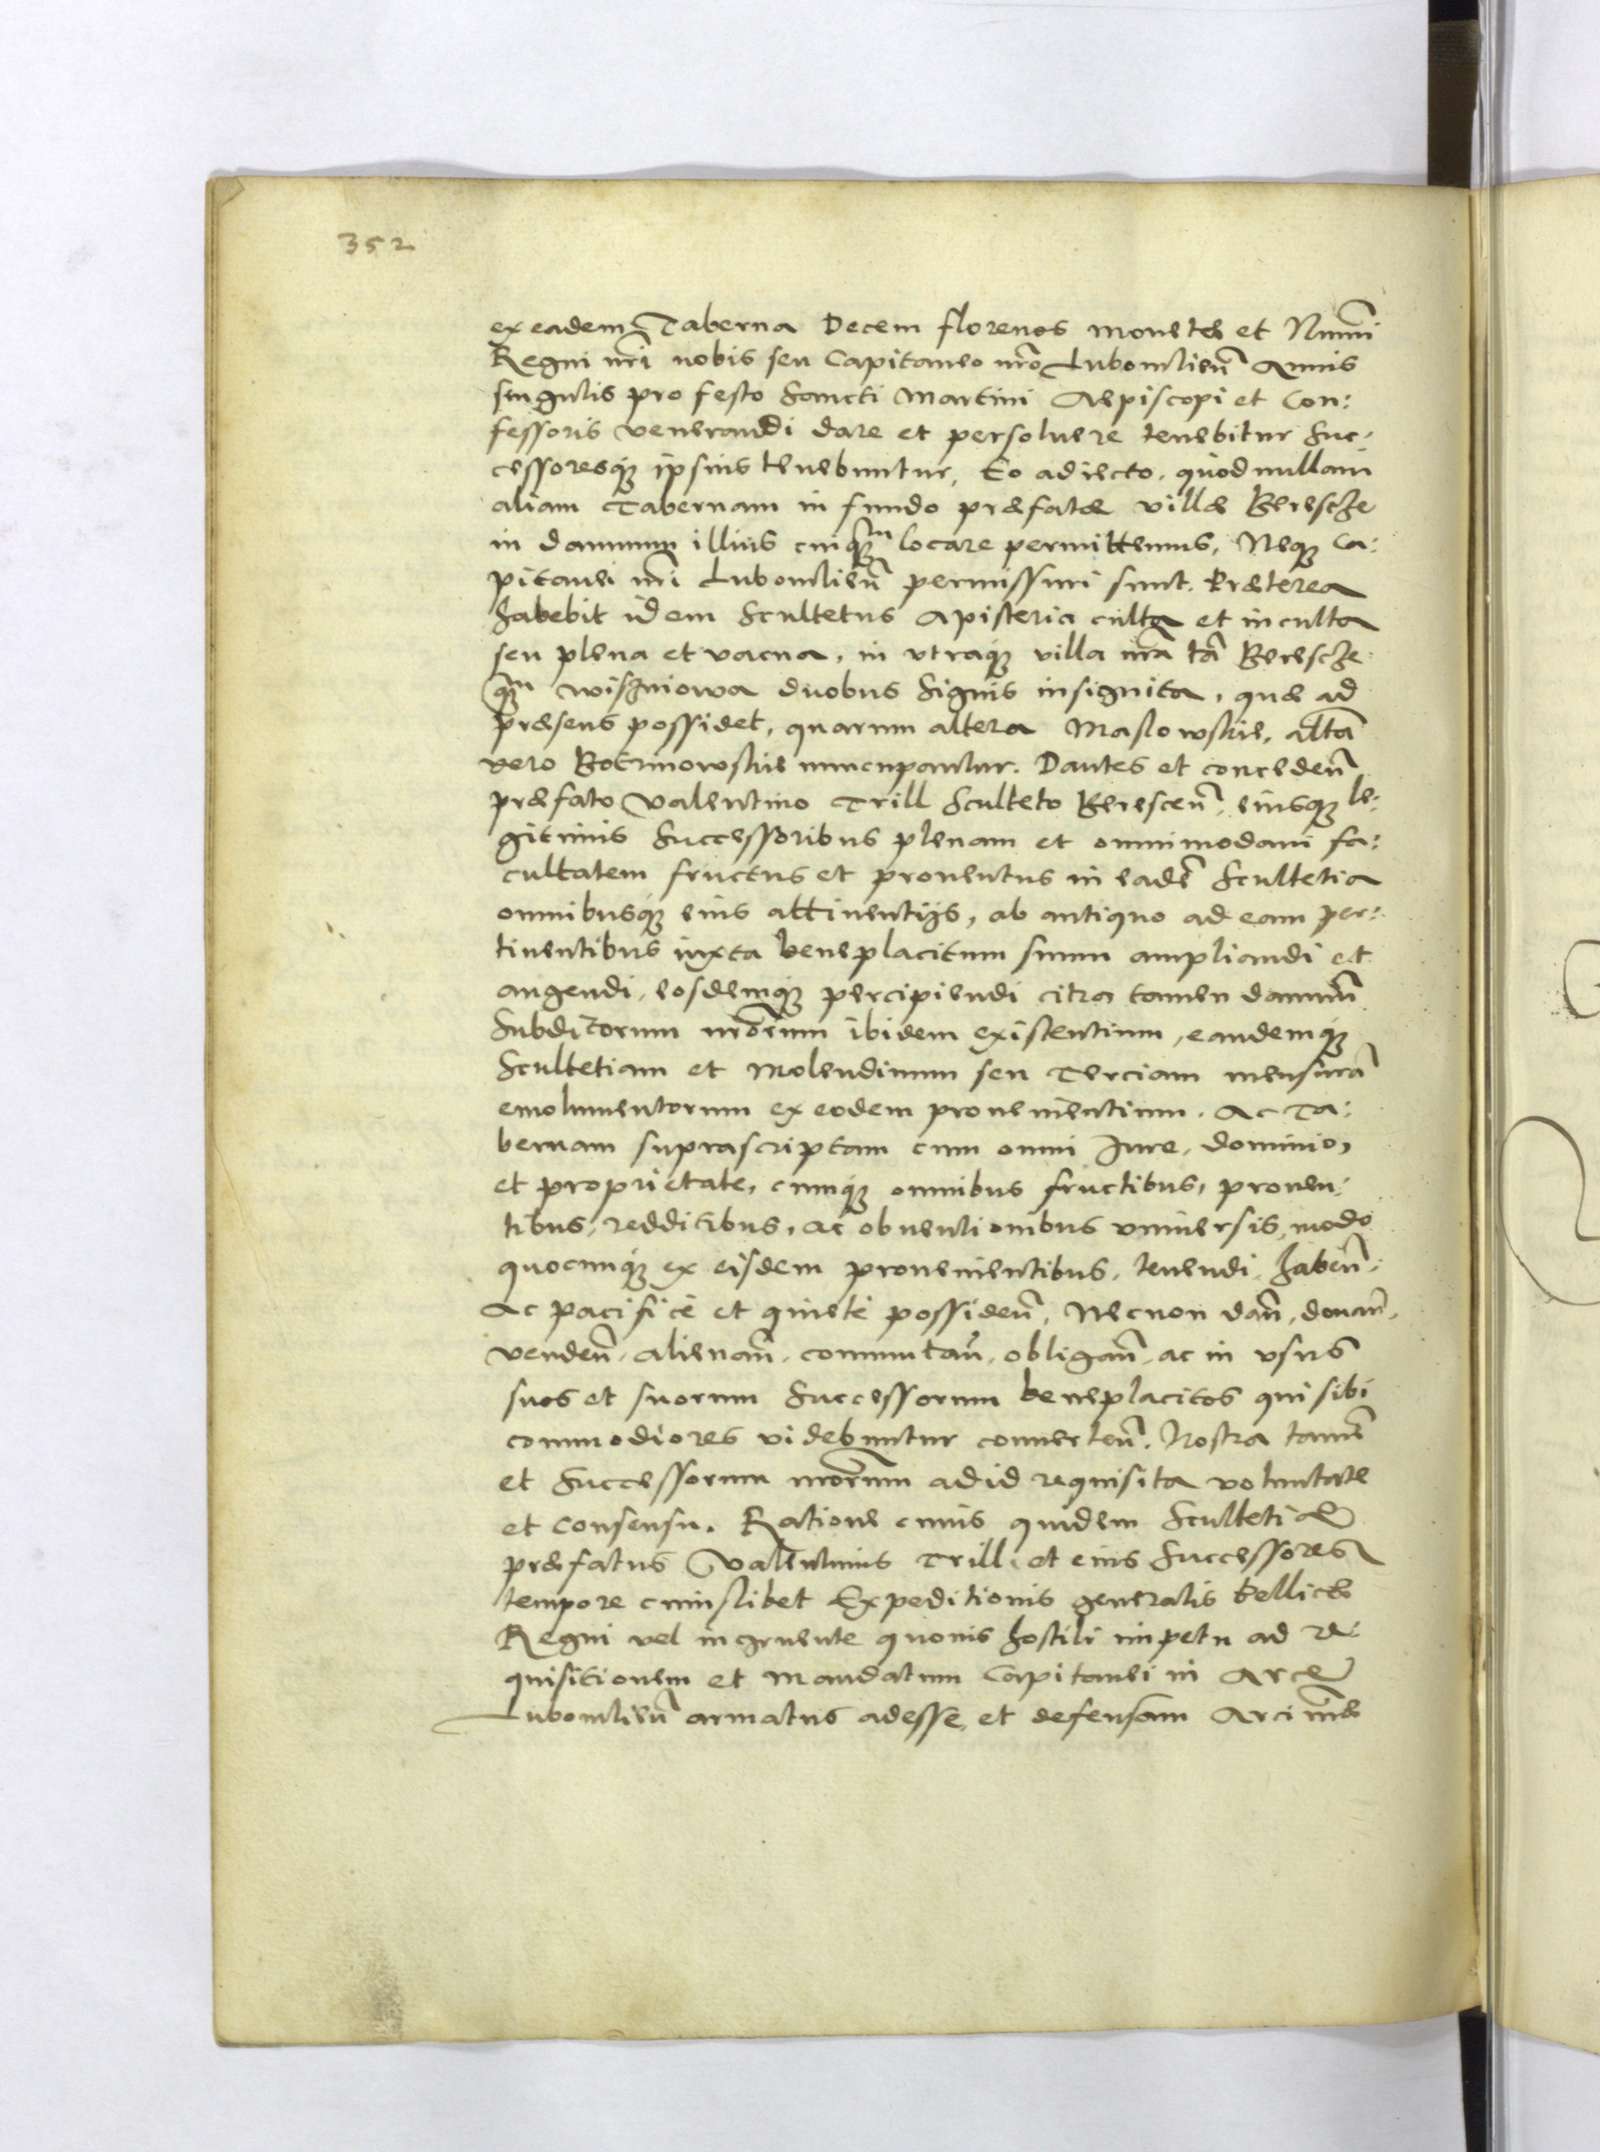 352
ex eadem Taberna Decem florenos monetę et Num̃i
Regni nr̃i nobis seu Capitaneo nr̃o Lubomlieñ Annis
singulis pro festo Sancti Martini Aepiscopi et Con:
fessoris venerandi dare et persoluere tenebitur Suc-
cessoresq₃ ipsius tenebuntur, Eo adiecto, quod nullam
aliam Tabernam in fundo præfatæ villæ Beresczę
in damnum illius cuiq₃m locare permittemus, Neq₃ Ca:
pitanei nr̃i Lubomlieñ permissuri sunt. Præterea
habebit idem Scultetus Apisteria culta et inculta
seu plena et vacua, in vtraq₃ villa nr̃a tã Beresczę
q₃m Wiszniowa duobus signis insignita, quæ ad
præsens possidet, quarum altera Maslowskie, altã
vero Botrinowskie nuncupantur. Dantes et concedeñ
præfato Valentino Trill Sculteto Beresceñ, eiusq₃ le:
gitimis Successoribus plenam et omnimodam fa:
cultatem fructus et prouentus in eadẽ Scultetia
omnibusq₃ eius attinentijs, ab antiquo ad eam per:
tinentibus iuxta beneplacitum suum ampliandi et
augendi, eosdemq₃ percipiendi citra tamen damnũ
Subditorum nr̃orum ibidem existentium, eandemq₃
Scultetiam et Molendinum seu Terciam mensurã
emolumentorum ex eodem prouenientium. Ac Ta:
bernam suprascriptam cum omni Jure, dominio,
et proprietate, cumq₃ omnibus fructibus, prouen:
tibus, redditibus, ac obuentionibus vniuersis, modo
quocunq₃ ex eisdem prouenientibus, tenendi, habeñ.
Ac pacificè et quietè possideñ, Necnon dañ, donañ,
vendeñ, alienañ, commutañ, obligañ, ac in vsus
suos et suorum Successorum beneplacitos qui sibi
commodiores videbuntur conuerteñ. Nostra tamẽ
et Successorum nr̃orum ad id requisita voluntate
et consensu. Ratione cuius quidem Scultetiæ
præfatus Valentinus Trill, et eius Successores
tempore cuiuslibet Expeditionis generalis bellicę
Regni vel ingruente quouis hostili impetu ad re:
quisitionem et mandatum Capitanei in Arce
Lubomlieñ armatus adesse, et defensam Arci nr̃æ